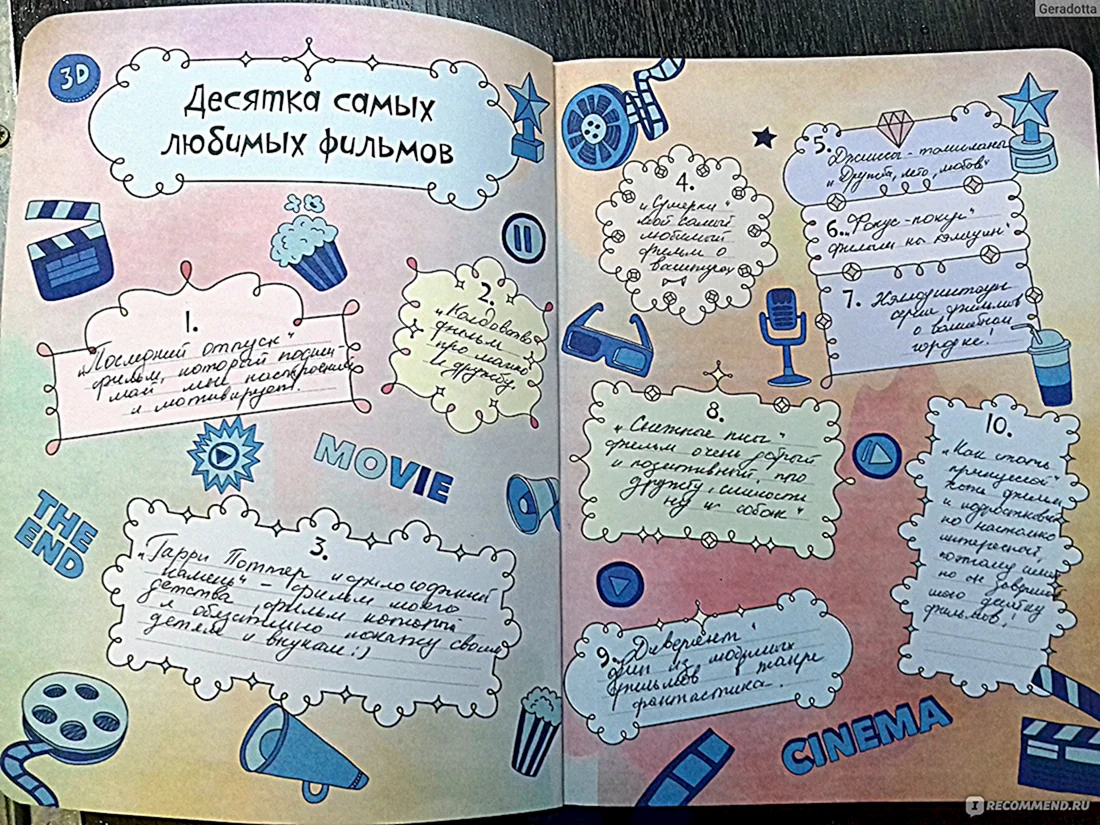 Geradotta
3D
Десятка самых
любимых фильмов
1.
„Последний отпуск“
фильм, который подни-
май мне настроение
и мотивирует.
2.
„Колдовство“
фильм
про магию
и дружбу.
MOVIE
THE
END
3.
„Гарри Поттер и философский
камень“ – фильм моего
детства, фильм который
я обязательно покажу своим
детям и внукам :)
4.
„Сумерки“
мой самый
любимый
фильм о
5.
Джинсы – талисманы
и Дружба, лето, любовь“
6. „Фокус-покус“
фильм на
7. Хэллоуинтаун
серия фильмов
о волшебном
городке.
8.
„Снежные псы“
фильм очень добрый
и позитивный, про
дружбу,
ну и собак“
9. Дивергент
один из любимых
фильмов в жанре
фантастика.
10.
„Как стать
принцессой“
хоть фильм
и подростковый
но настолько
интересный
поэтому
но он завершил
мою десятку
фильмов!
CINEMA
IRECOMMEND.RU